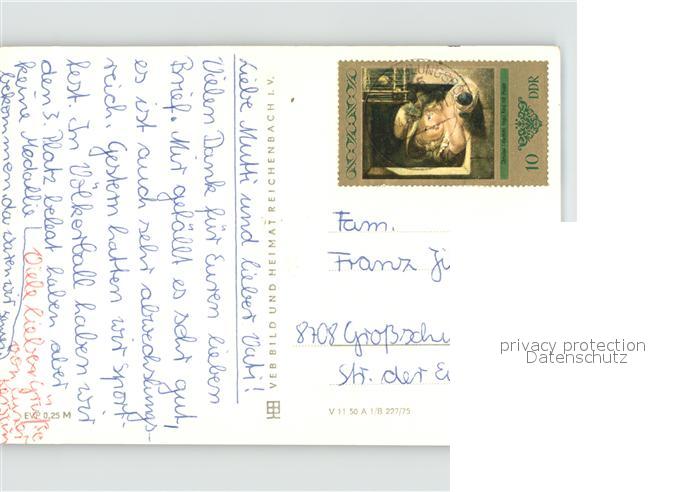 Liebe Mutti und lieber Vati!
Vielen Dank für Euren lieben
Brief. Mir gefällt es sehr gut,
es ist auch sehr abwechslungs-
reich. Gestern hatten wir Sport-
fest. In Völkerball haben wir
den 3. Platz belegt haben aber
keine Medaille
bekommen da waren wir
Viele liebe Grüße
von
EVP 0,25 M
VEB BILD UND HEIMAT REICHENBACH I. V.
V 11 50 A 1/B 227/75
DDR
10
Fam.
Franz
8708 Großschu
Str. der
privacy protection
Datenschutz